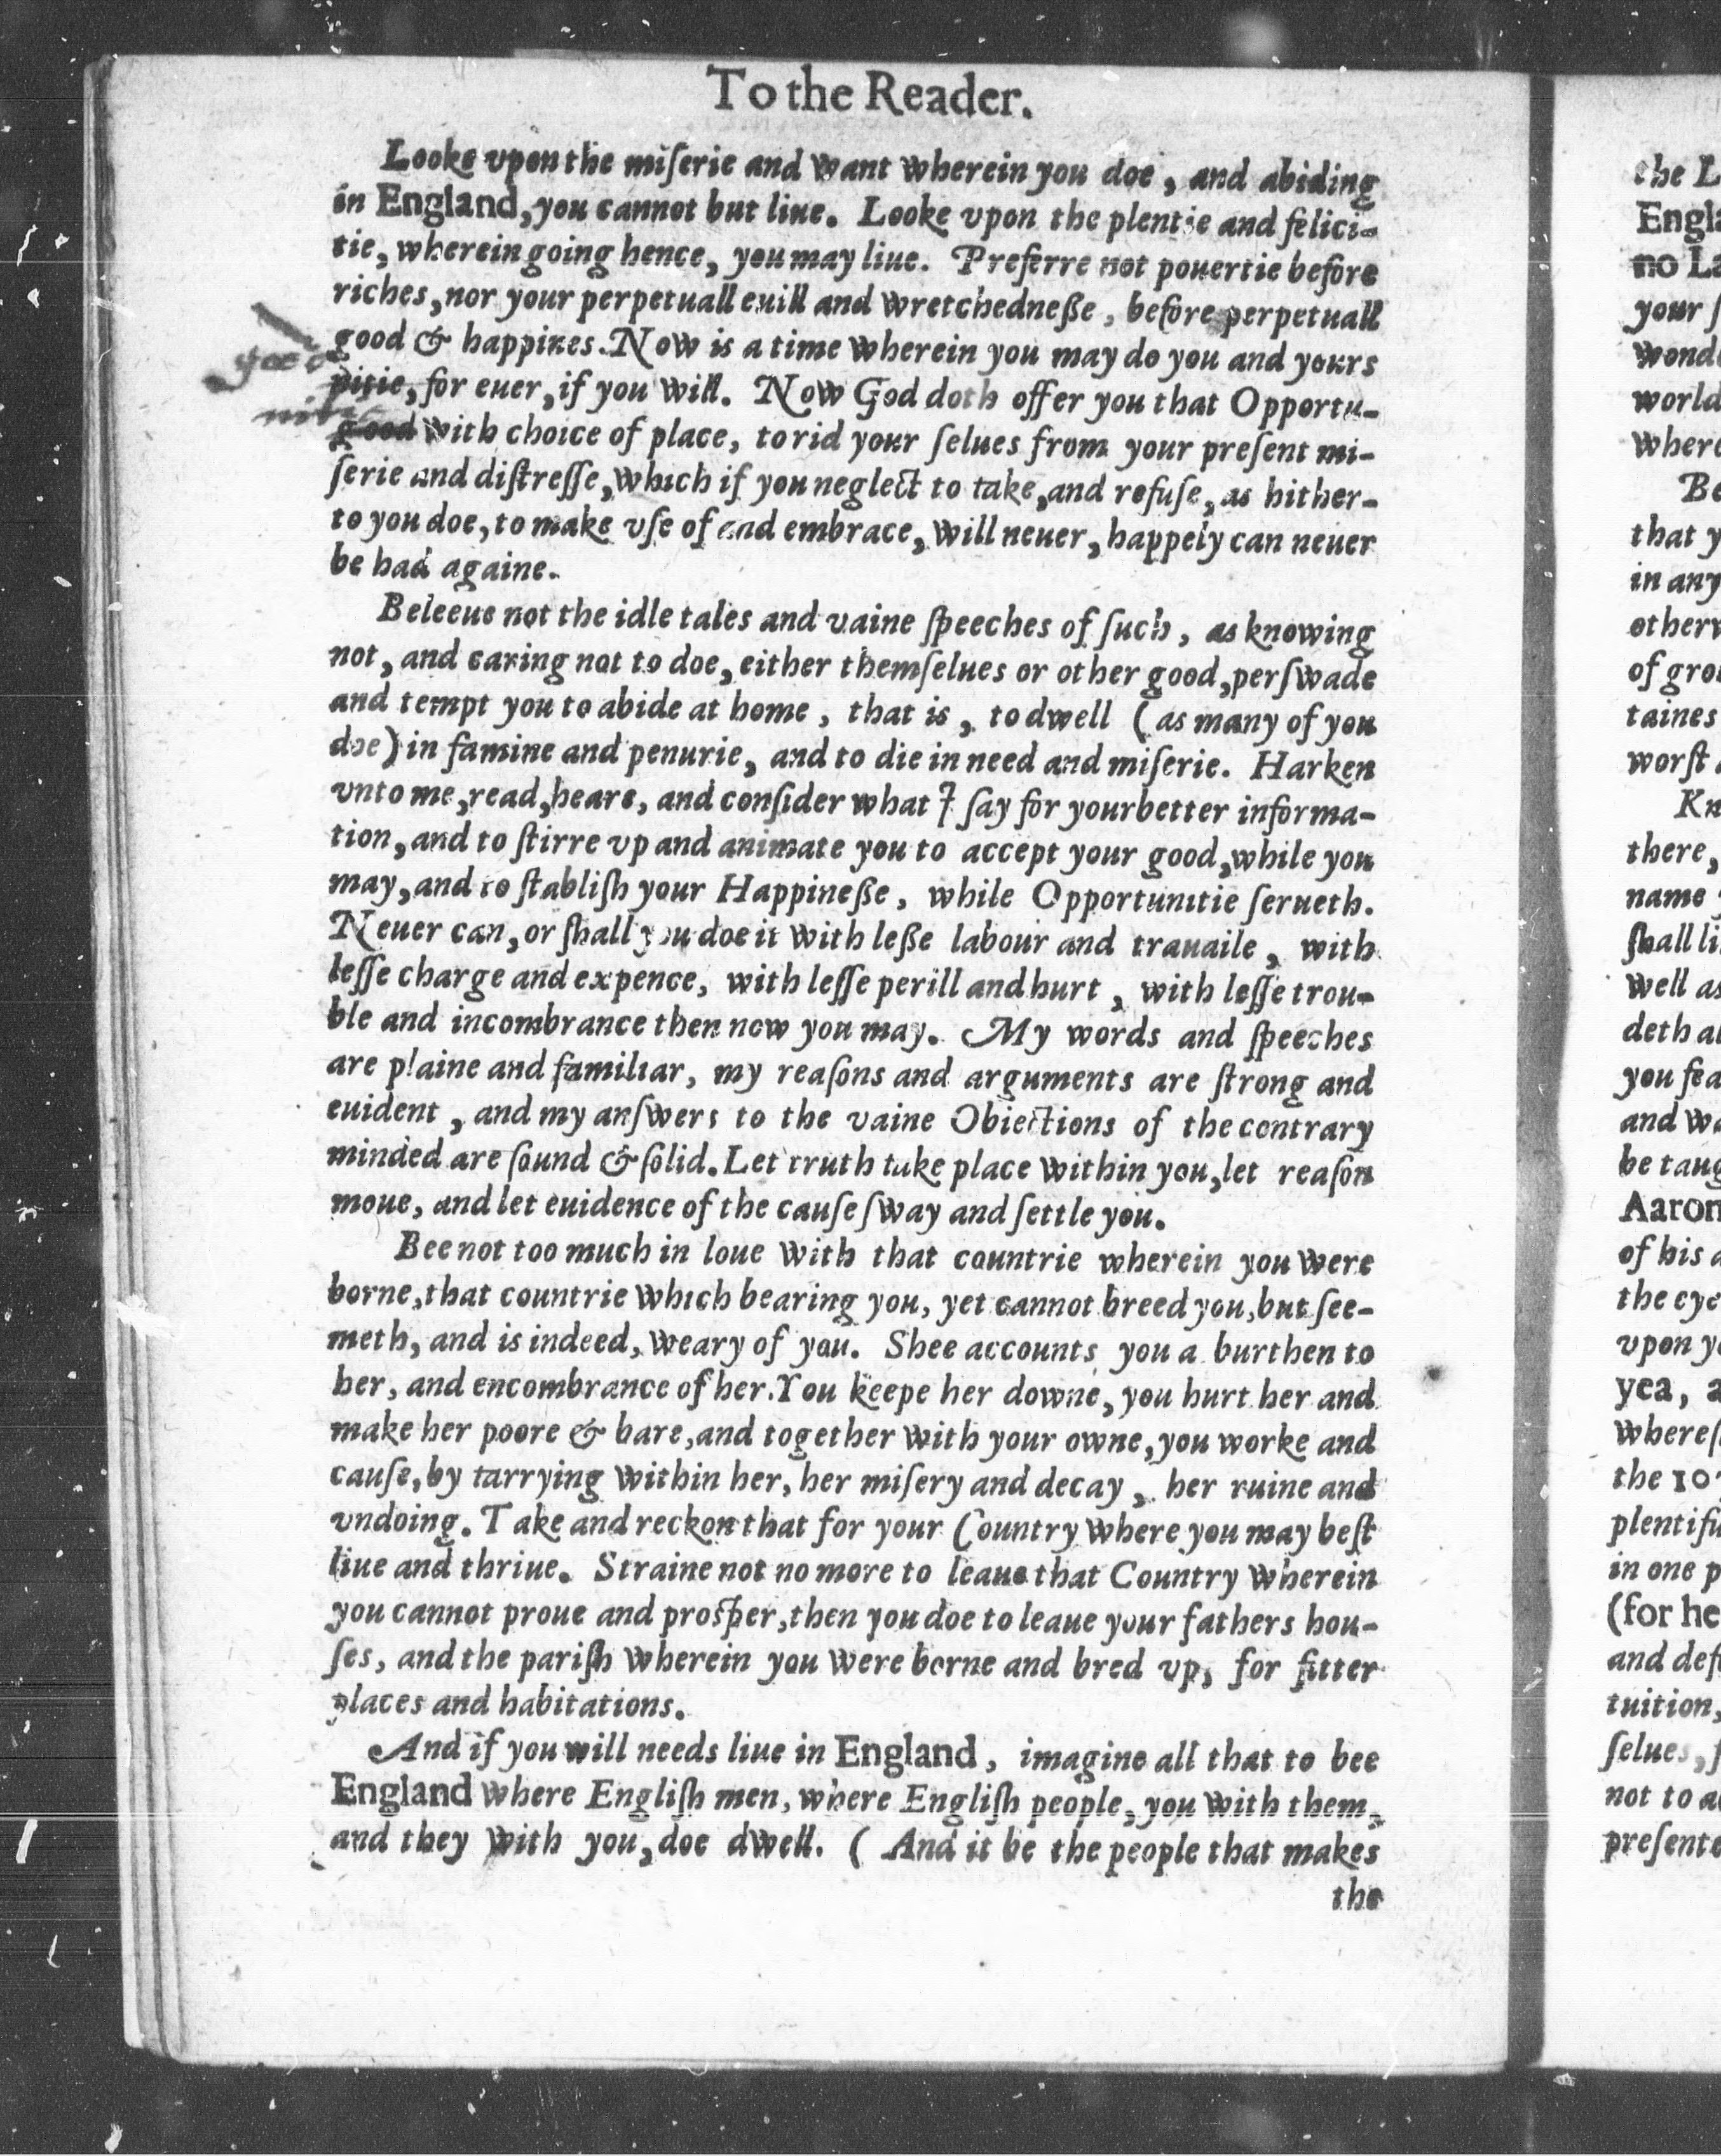 To the Reader.
Looke vpon the miſerie and want wherein you doe, and abiding
in England, you cannot but liue. Looke vpon the plentie and felici-
tie, wherein going hence, you may liue. Preferre not pouertie before
riches, nor your perpetuall euill and wretchedneße, before perpetuall
good & happines. Now is a time wherein you may do you and yours
good
pitie, for euer, if you will. Now God doth offer you that Opportu-
nitie
good with choice of place, to rid your ſelues from your preſent mi-
ſerie and diſtreſſe, which if you neglect to take, and refuſe, as hither-
to you doe, to make vſe of and embrace, will neuer, happely can neuer
be had againe.
Beleeue not the idle tales and vaine ſpeeches of ſuch, as knowing
not, and caring not to doe, either themſelues or other good, perſwade
and tempt you to abide at home, that is, to dwell (as many of you
doe) in famine and penurie, and to die in need and miſerie. Harken
vnto me, read, heare, and conſider what I ſay for your better informa-
tion, and to ſtirre vp and animate you to accept your good, while you
may, and to ſtabliſh your Happineße, while Opportunitie ſerueth.
Neuer can, or ſhall you doe it with leße labour and trauaile, with
leſſe charge and expence, with leſſe perill and hurt, with leſſe trou-
ble and incombrance then now you may. My words and ſpeeches
are plaine and familiar, my reaſons and arguments are ſtrong and
euident, and my anſwers to the vaine Obiections of the contrary
minded are ſound & ſolid. Let truth take place within you, let reaſon
moue, and let euidence of the cauſe ſway and ſettle you.
Bee not too much in loue with that countrie wherein you were
borne, that countrie which bearing you, yet cannot breed you, but ſee-
meth, and is indeed, weary of you. Shee accounts you a burthen to
her, and encombrance of her. You keepe her downe, you hurt her and
make her poore & bare, and together with your owne, you worke and
cauſe, by tarrying within her, her miſery and decay, her ruine and
vndoing. Take and reckon that for your Country where you may beſt
liue and thriue. Straine not no more to leaue that Country wherein
you cannot proue and proſper, then you doe to leaue your fathers hou-
ſes, and the pariſh wherein you were borne and bred vp, for fitter
places and habitations.
And if you will needs liue in England, imagine all that to bee
England where Engliſh men, where Engliſh people, you with them,
and they with you, doe dwell. (And it be the people that makes
the
the L
Engla
no La
your ſ
wonde
world
where
Be
that y
in any
otherw
of grou
taines
worſt a
Kn
there,
name
ſhall li
well as
deth al
you fea
and wa
be taug
Aaron
of his a
the eye
vpon yo
yea, a
whereſ
the 107
plentifu
in one p
(for he
and defe
tuition,
ſelues, ſ
not to a
preſente